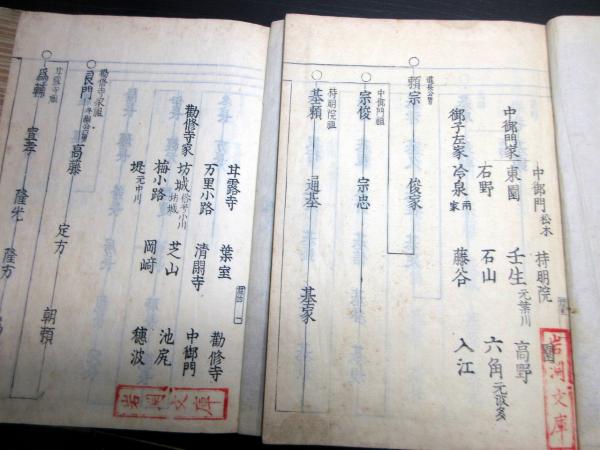 中御門 松木 持明院
中御門家 東園 壬生 元葉川 高野
石野 石山 六角 元波多
御子左家 冷泉 両家 藤谷 入江
道長公男
頼宗 俊家
中御門祖
宗俊 宗忠
持明院祖
基頼 通基 基家
岩渕文庫
甘露寺 葉室 勧修寺
万里小路 清閑寺 中御門
勧修寺家 坊城 俗ニ小川坊城 芝山 池尻
梅小路 岡崎 穂波
堤 元中川
勧修寺家祖
良門 冬嗣公男 高藤 定方 朝頼
甘露寺祖
為輔 宣孝 隆光 隆方
岩渕文庫